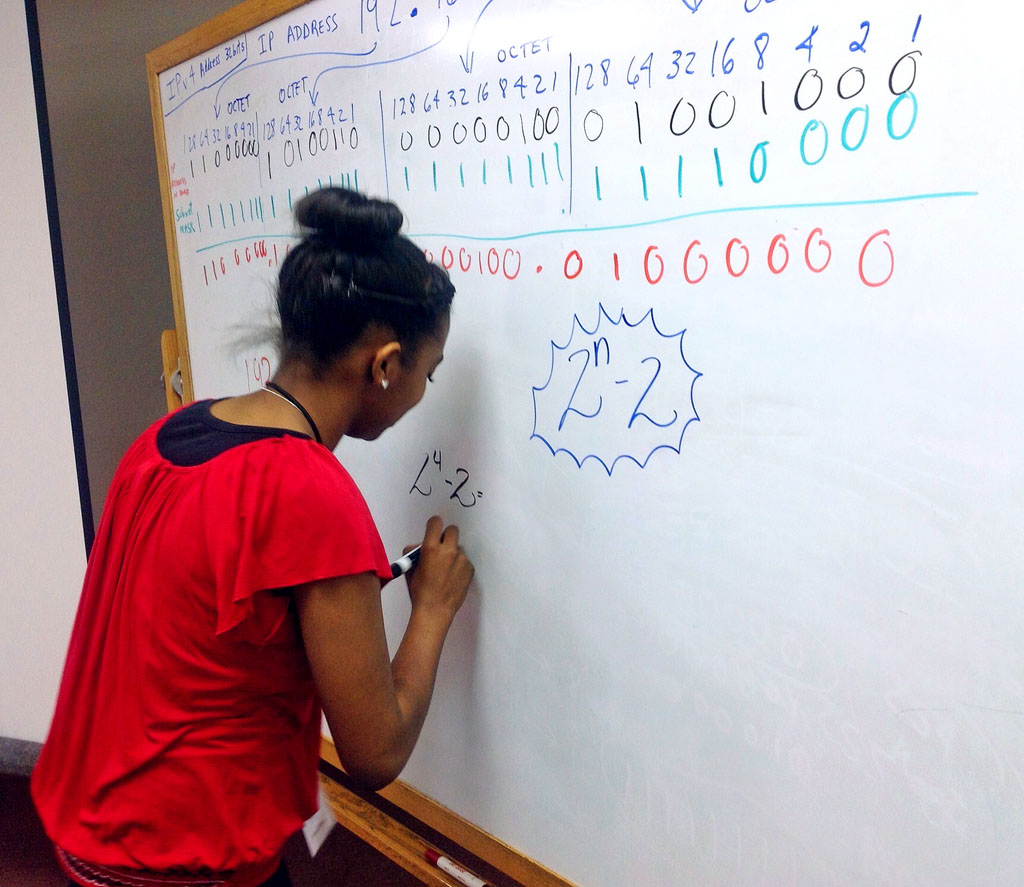 IPv4 Address 32bits IP ADDRESS 192.
OCTET OCTET OCTET
128 64 32 16 8 4 2 1 128 64 32 16 8 4 2 1 128 64 32 16 8 4 2 1 128 64 32 16 8 4 2 1
1 1 0 0 0 0 0 0 1 0 1 0 0 1 1 0 0 0 0 0 0 1 0 0 0 1 0 0 1 0 0 0
Subnet
MASK 1 1 1 1 1 1 1 1 1 1 1 1 1 1 1 1 1 1 1 1 1 1 1 1 . 1 1 1 1 0 0 0 0
1 1 0 0 0 0 0 0 . 1 0 0 0 1 0 0 . 0 1 0 0 0 0 0 0
192
2ⁿ-2
2⁴-2=